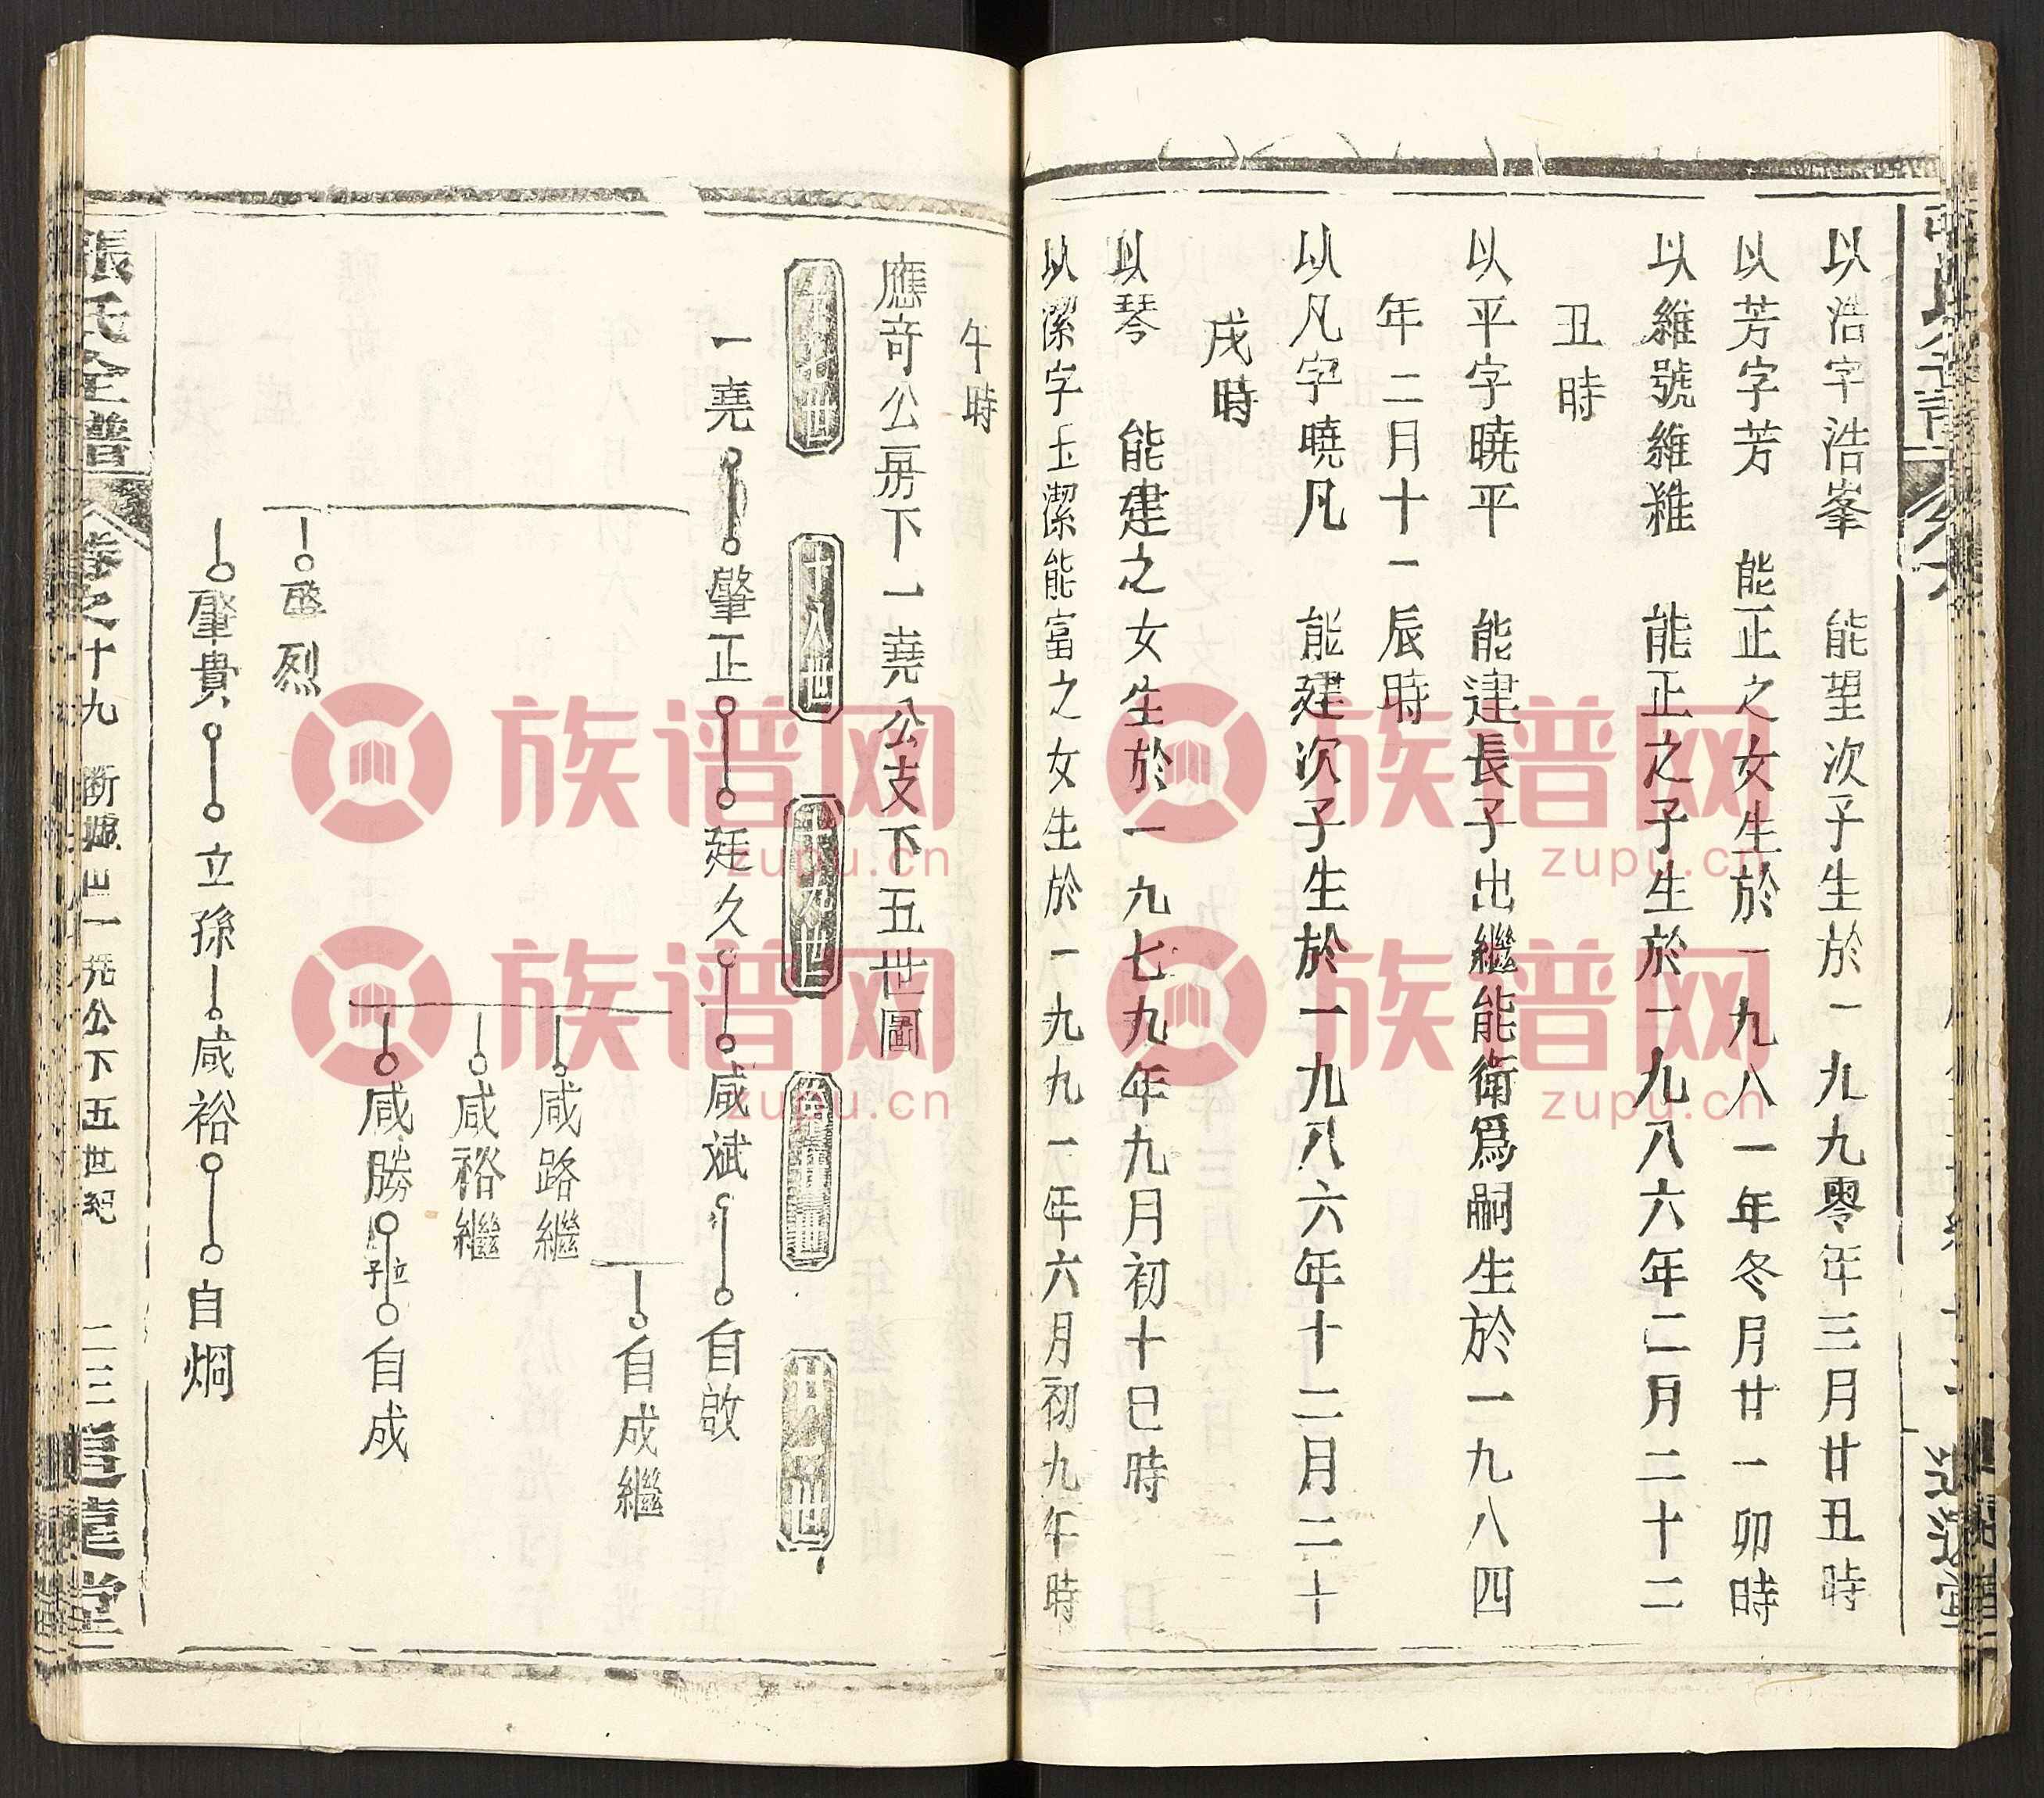 以浩字浩峯　能望次子生於一九九零年三月廿丑時
以芳字芳　能正之女生於一九八一年冬月廿一卯時
以維號維維　能正之子生於一九八六年二月二十二
丑時
以平字曉平　能建長子出繼能衛爲嗣生於一九八四
年二月十一辰時
以凡字曉凡　能建次子生於一九八六年十二月二十
戌時
以琴　能建之女生於一九七九年九月初十巳時
以潔字玉潔能富之女生於一九九一年六月初九午時
午時
應奇公房下一堯公支下五世圖
十八世
十九世
一堯 肇正 廷久 咸斌 自啟
自成繼
咸路繼
咸裕繼
咸勝 立子 自成
烈
肇貴 立孫 咸裕 自炯
張氏全譜 卷之十九 公下五世紀 二三 堂
族谱网
zupu.cn
族谱网
zupu.cn
族谱网
zupu.cn
族谱网
zupu.cn